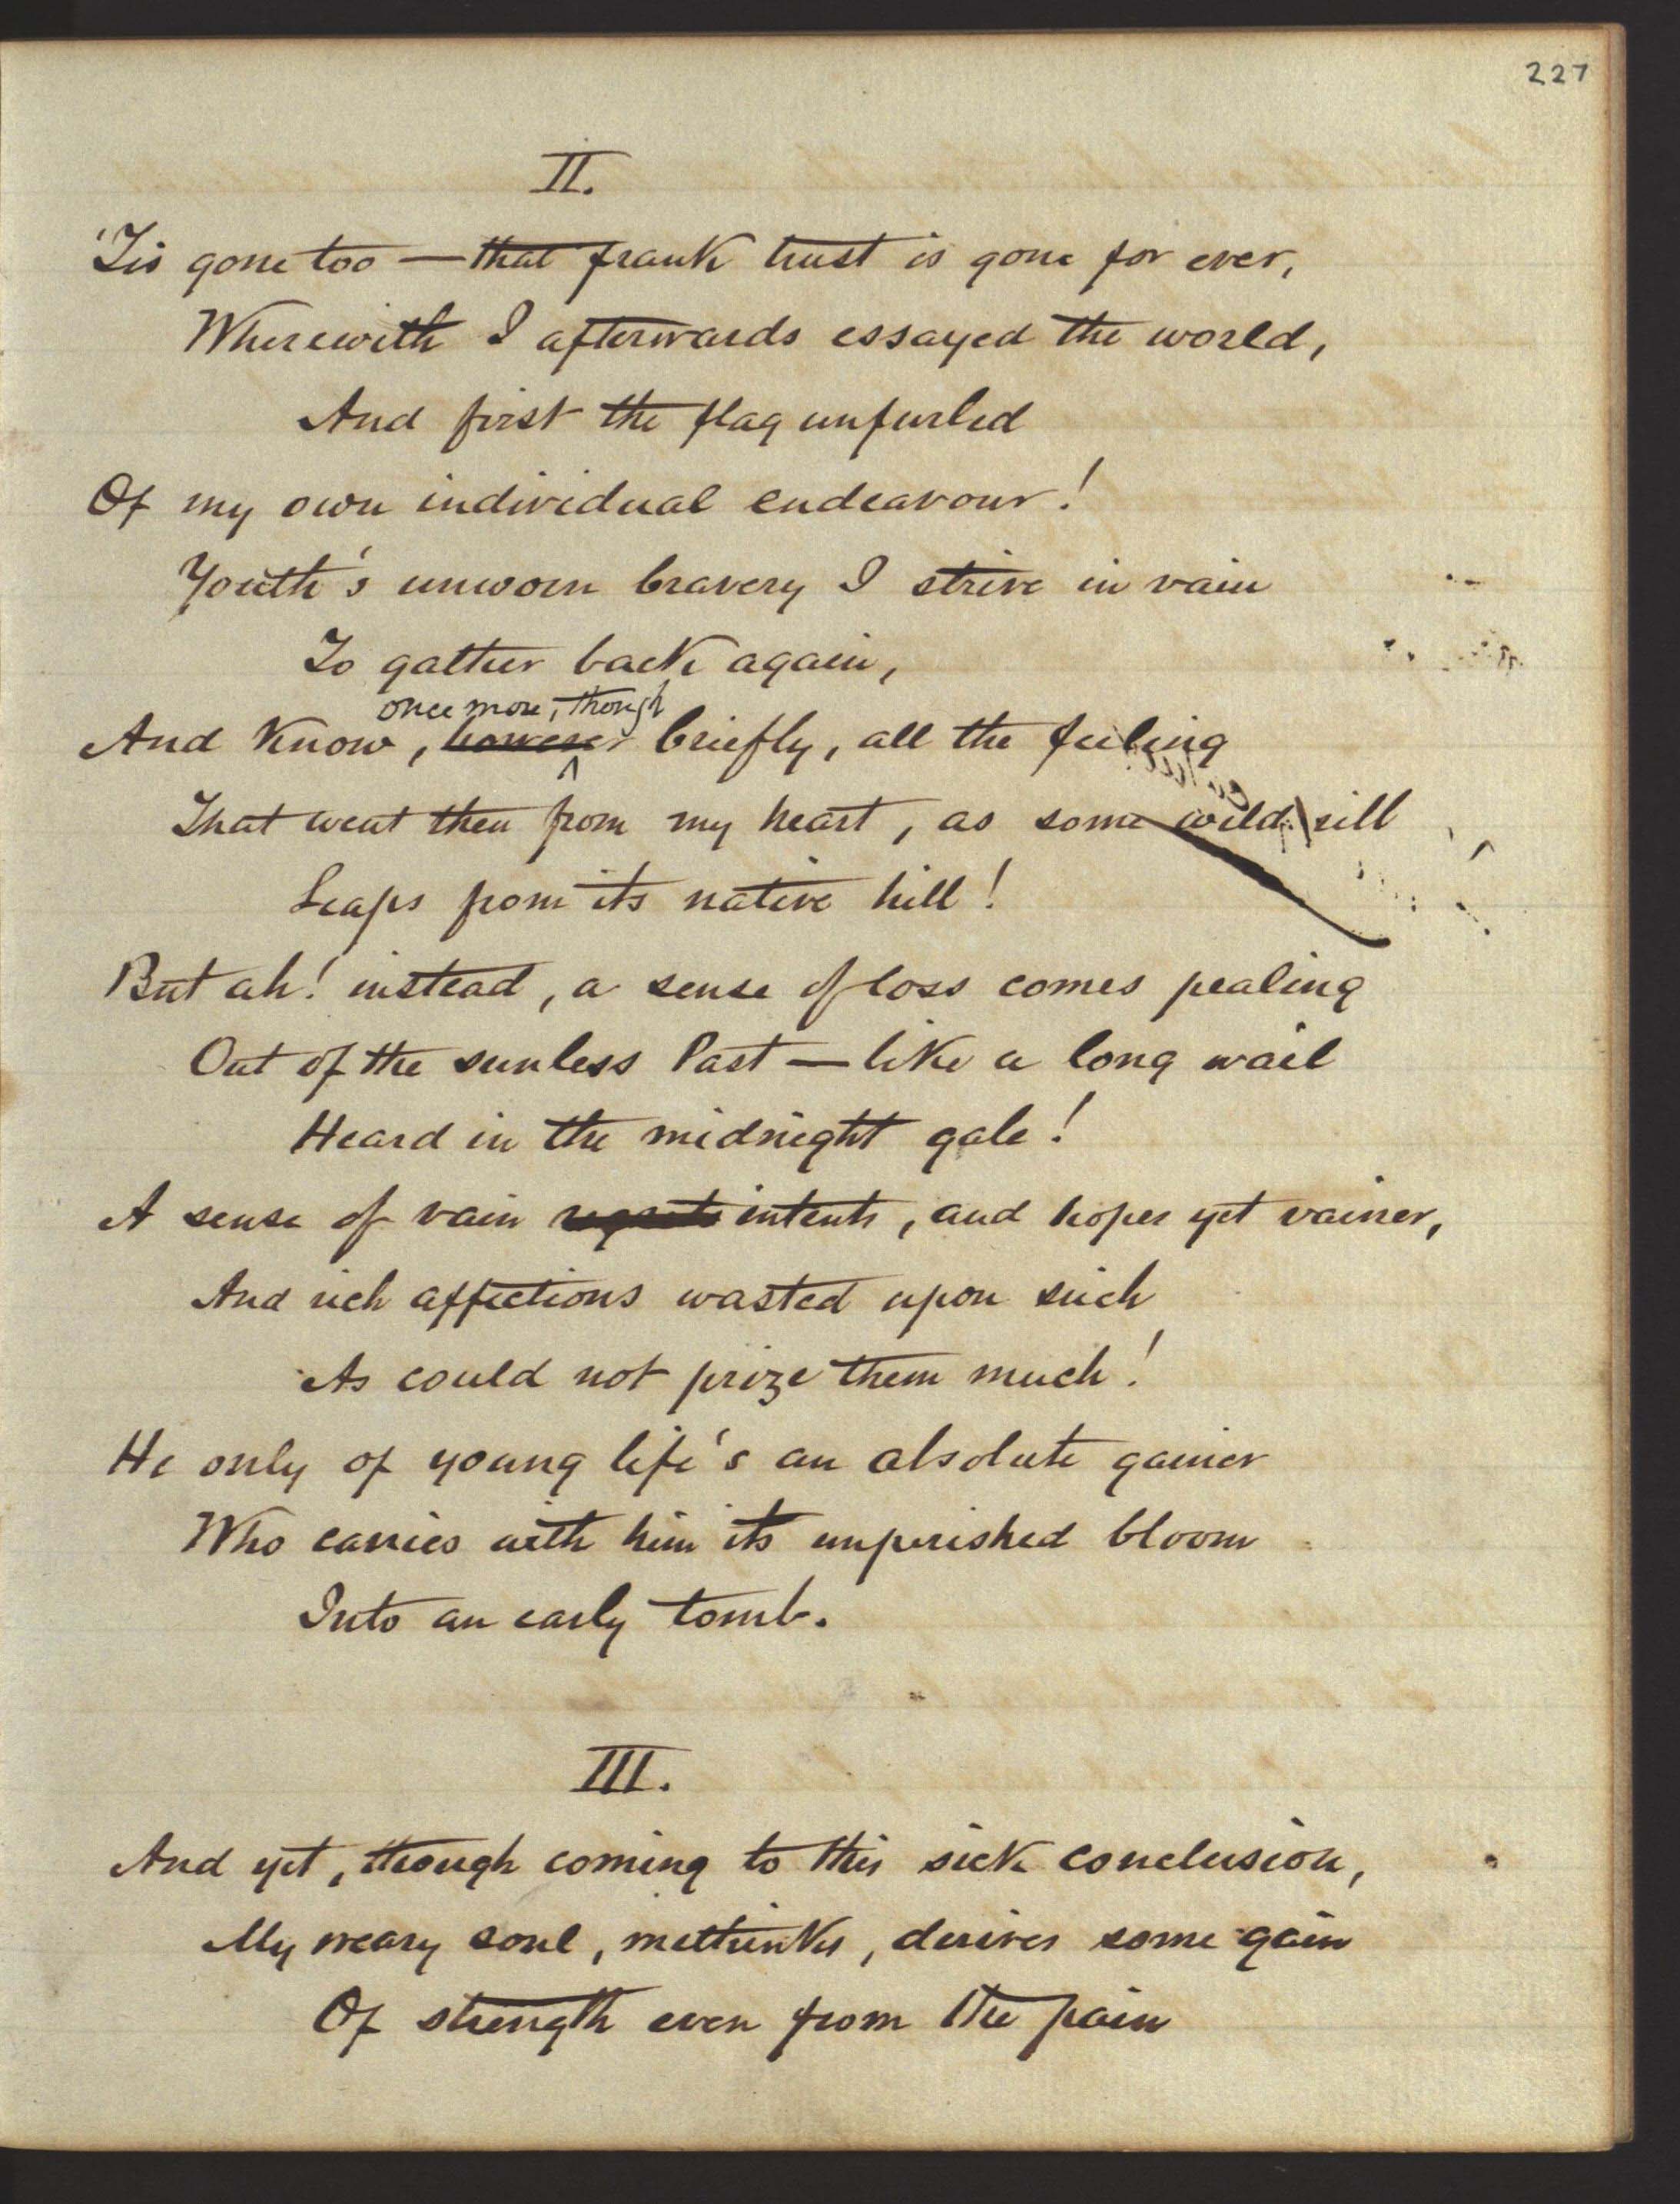 227
II.
'Tis gone too — that frank trust is gone for ever,
Wherewith I afterwards essayed the world,
And first the flag unfurled
Of my own individual endeavour!
Youth's unworn bravery I strive in vain
To gather back again,
once more, though
And know, however briefly, all the feeling
That went then from my heart, as some wild rill
Leaps from its native hill!
But ah! instead, a sense of loss comes pealing
Out of the sunless Past — like a long wail
Heard in the midnight gale!
A sense of vain regrets intents, and hopes yet vainer,
And rich affections wasted upon such
As could not prize them much!
He only of young life's an absolute gainer
Who carries with him its unperished bloom
Into an early tomb.
III.
And yet, though coming to this sick conclusion,
My weary soul, methinks, derives some gain
Of strength even from the pain